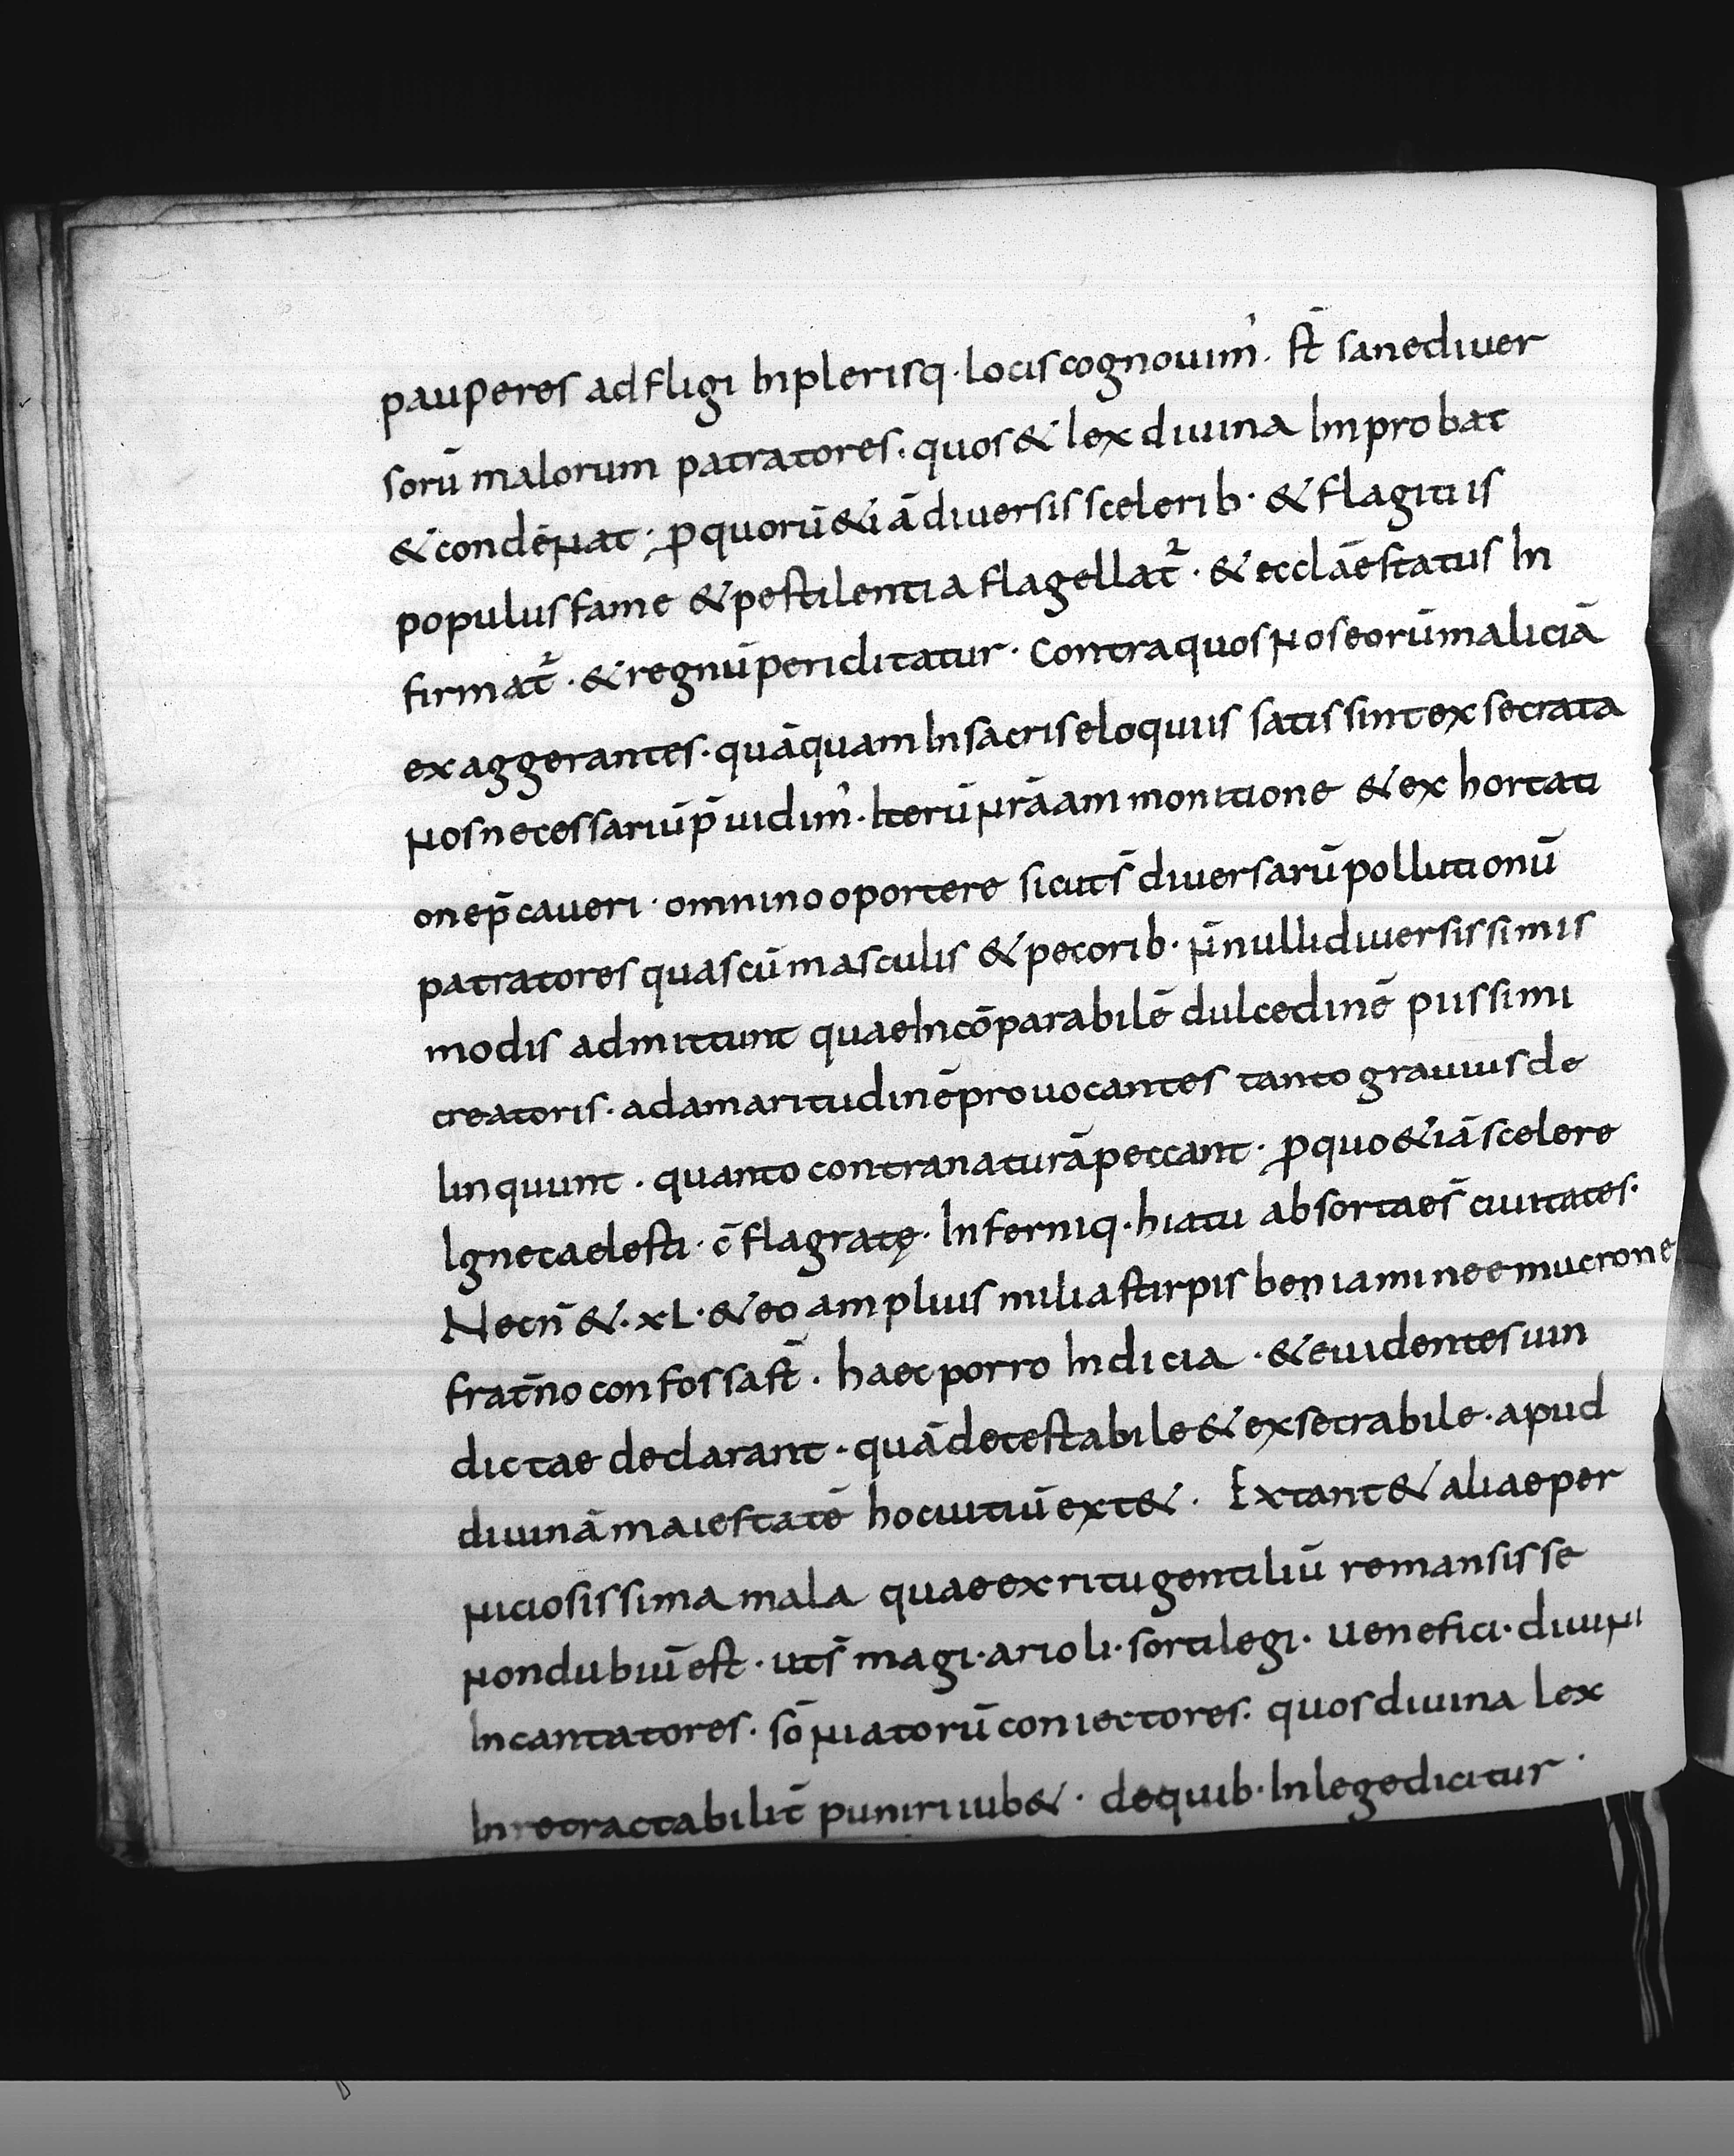 pauperes adfligi In plerisq· locis cognouim᾽. st̄ sane diuer
sorū malorum patratores· quos & lex diuina Improbat
& condēNat· ꝑ quorū &iā diuersis scelerib· & flagitiis
populus fame & pestilentia flagellat᷑· & ecclāe status In
firmat᷑· & regnū periclitatur· Contra quos Nos eorū maliciā
exaggerantes· quāquam In sacris eloquiis satis sint exsecrata
Nos necessariū p̄uidim᾽· Iterū Nr̄a ammonitione & exhortati
one p̄caueri· omnino oportere sicut s̄ diuersarū pollutionū
patratores quas cū masculis & pecorib· N̄nulli diuersissimis
modis admittunt quae Incōparabilē dulcedinē piissimi
creatoris· ad amaritudinē prouocantes tanto grauius de
linquunt· quanto contra naturā peccant· ꝑ quo &iā scelere
Igne caelesti· c̄flagratę· Inferniq· hiatu absortae s̄ ciuitates·
Necn̄ &· xL· & eo amplius milia stirpis beniaminee mucrone
frat̄no confossa st̄· haec porro Indicia· & euidentes uin
dictae declarant· quā detestabile & exsecrabile· apud
diuinā maiestatē hoc uitiū ext&· Extant & alia per
Niciosissima mala quae ex ritu gentiliū remansisse
Non dubiū est· ut s̄ magi· arioli· sortilegi· uenefici· diuiNi
Incantatores· sōNiatorū coniectores· quos diuina lex
Inretractabilit̄ puniri iub&· de quib· In lege dicitur·